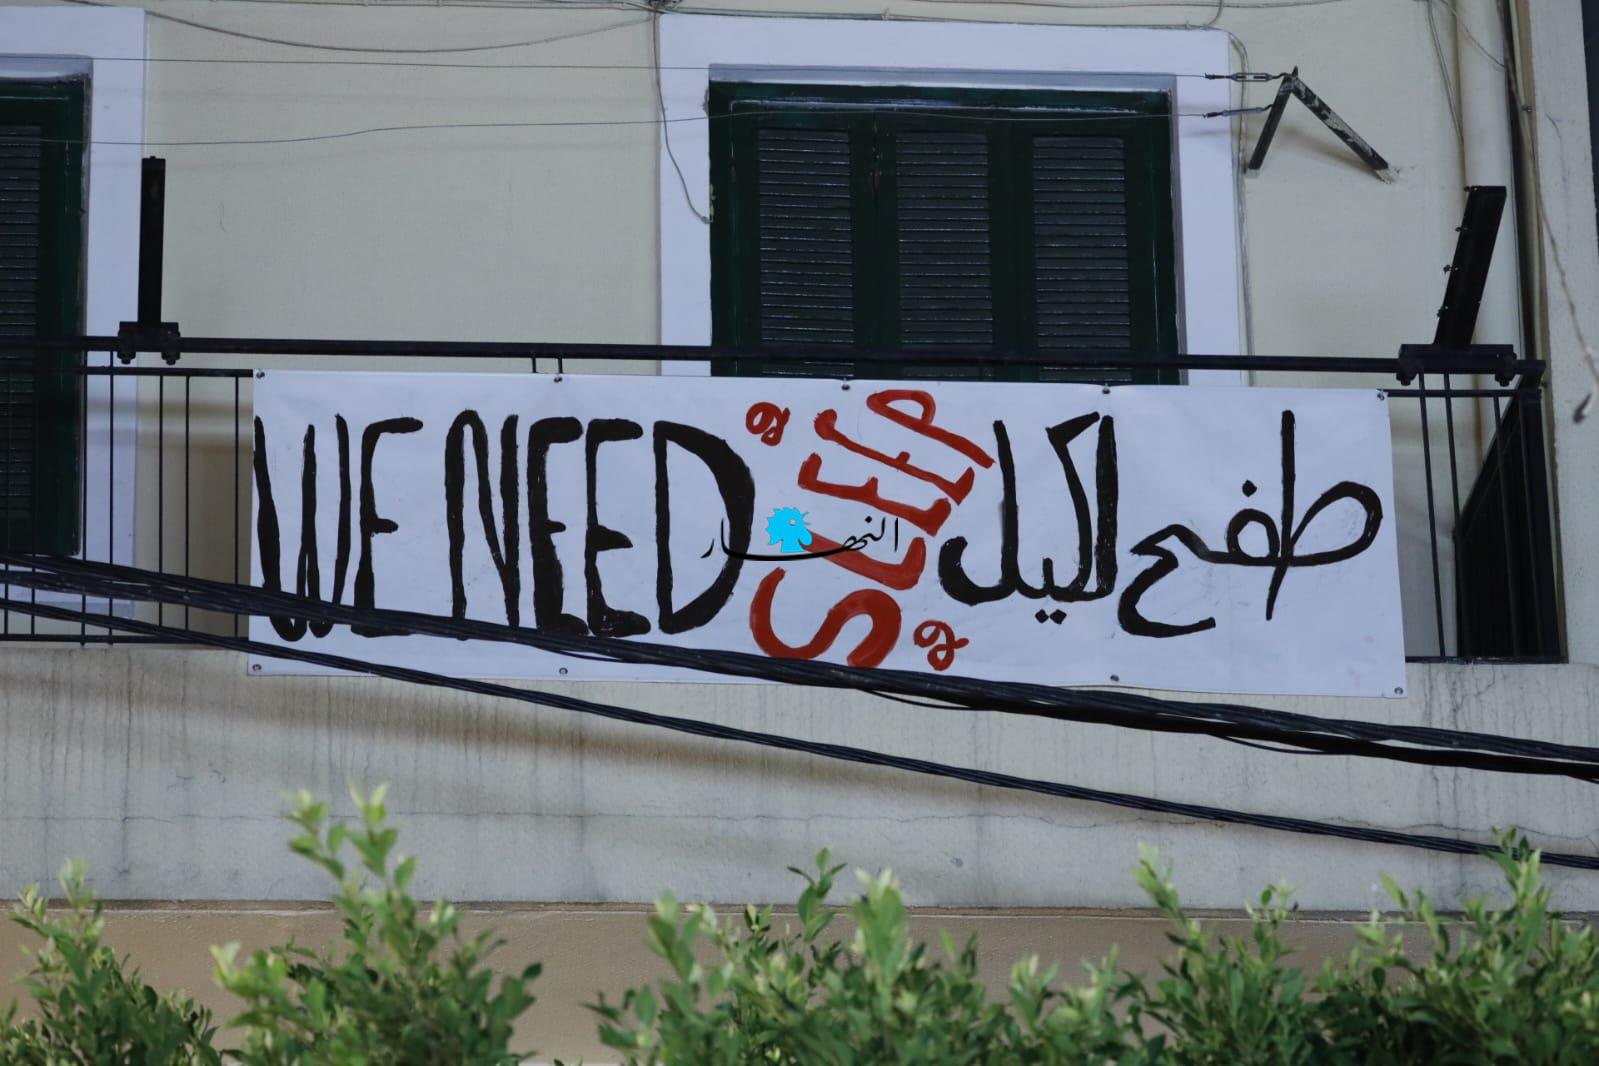 WE NEED
SLEEP
طفح الكيل
النهار